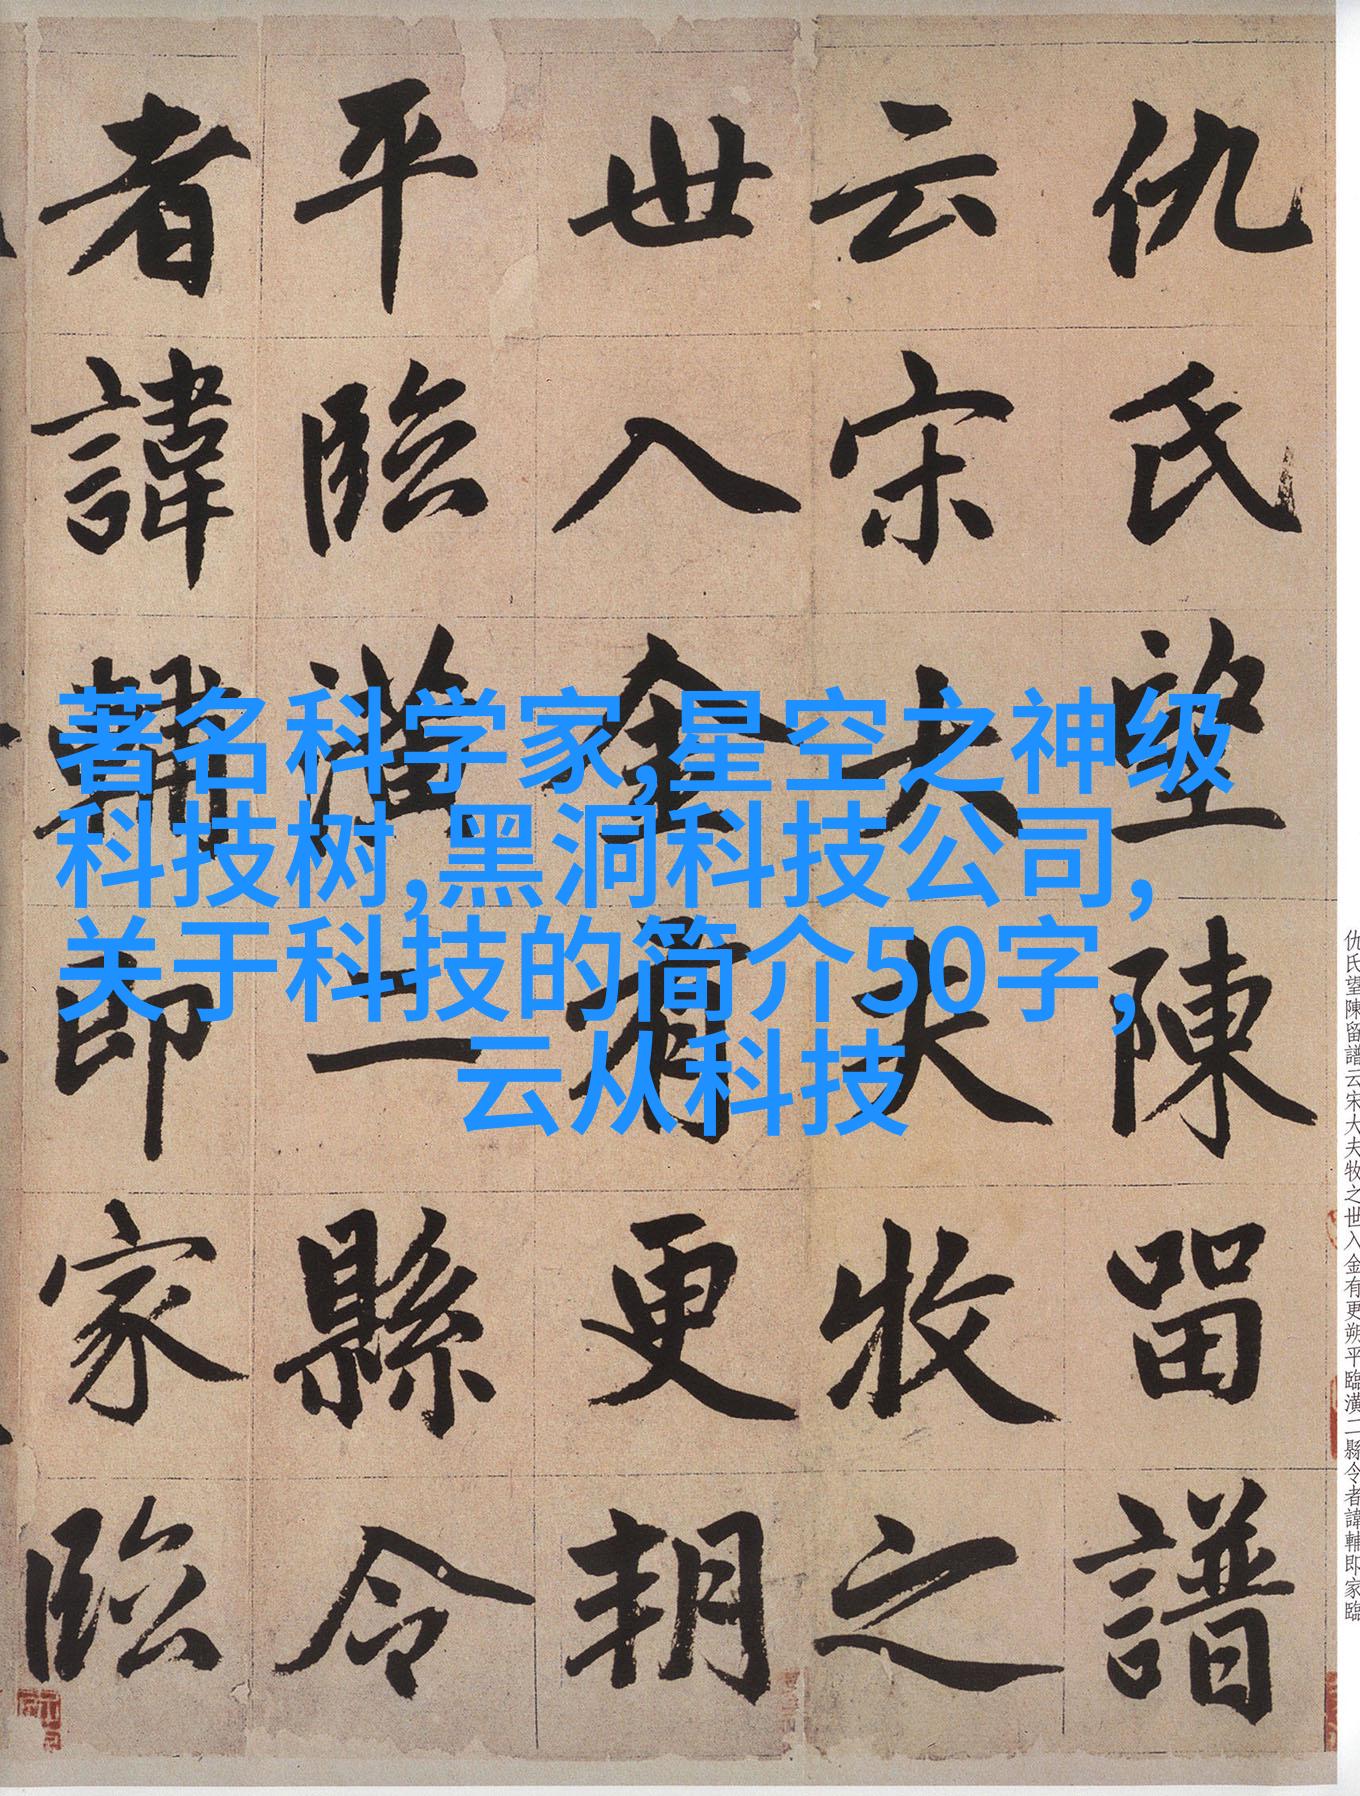 仇氏望陳留譜
云宋大夫牧之
世入金有更朔
平臨潢二縣令
者諱輔即家臨
著名科学家,星空之神级
科技树,黑洞科技公司,
关于科技的简介50字,
云从科技
仇氏望陳留譜云宋大夫牧之世入金有更朔平臨潢二縣令者諱輔即家臨